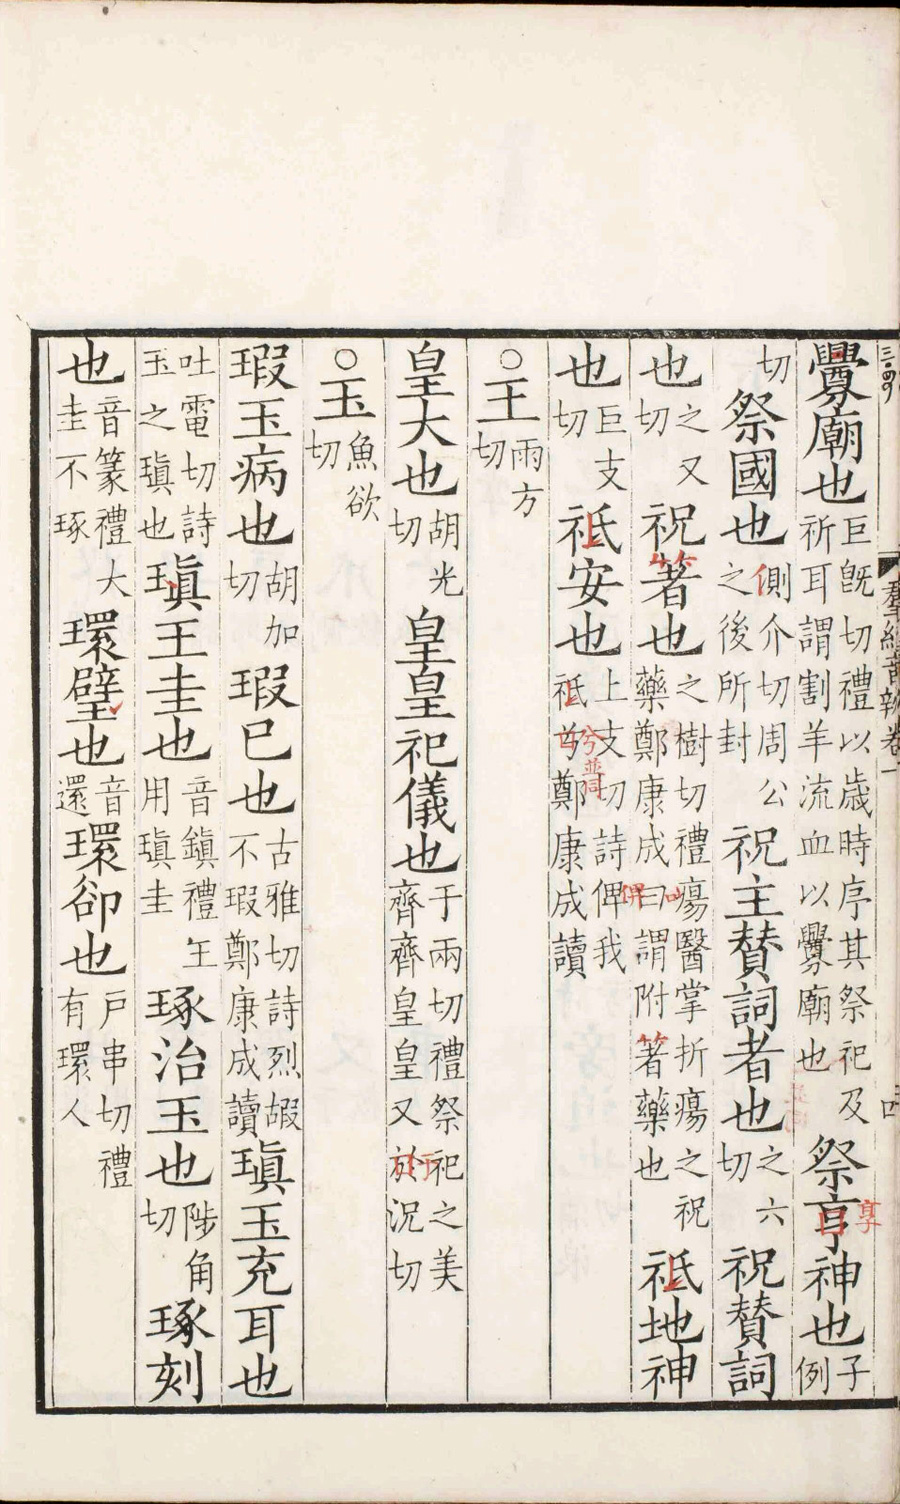 釁廟也巨旣切禮以歲時序其祭祀及祈耳謂割羊流血以釁廟也祭亨神也子例
切祭國也側介切周公之後所封祝主贊詞者也之六切祝贊詞
也之又切祝著也之樹切禮瘍醫掌折瘍之祝藥鄭康成曰謂附著藥也祗地神
也巨支切祗安也上支切詩俾我祗也鄭康成讀
○王雨方切
皇大也胡光切皇皇祀儀也于兩切禮祭祀之美齊齊皇皇又於況切
○玉魚欲切
瑕玉病也胡加切瑕巳也古雅切詩烈嘏不瑕鄭康成讀瑱玉充耳也
吐電切詩玉之瑱也瑱王圭也音鎮禮王用瑱圭琢治玉也陟角切琢刻
也音篆禮大圭不琢環璧也音還環卻也戶串切禮有環人
羣經音辨卷一
四
享
兮並同
俾